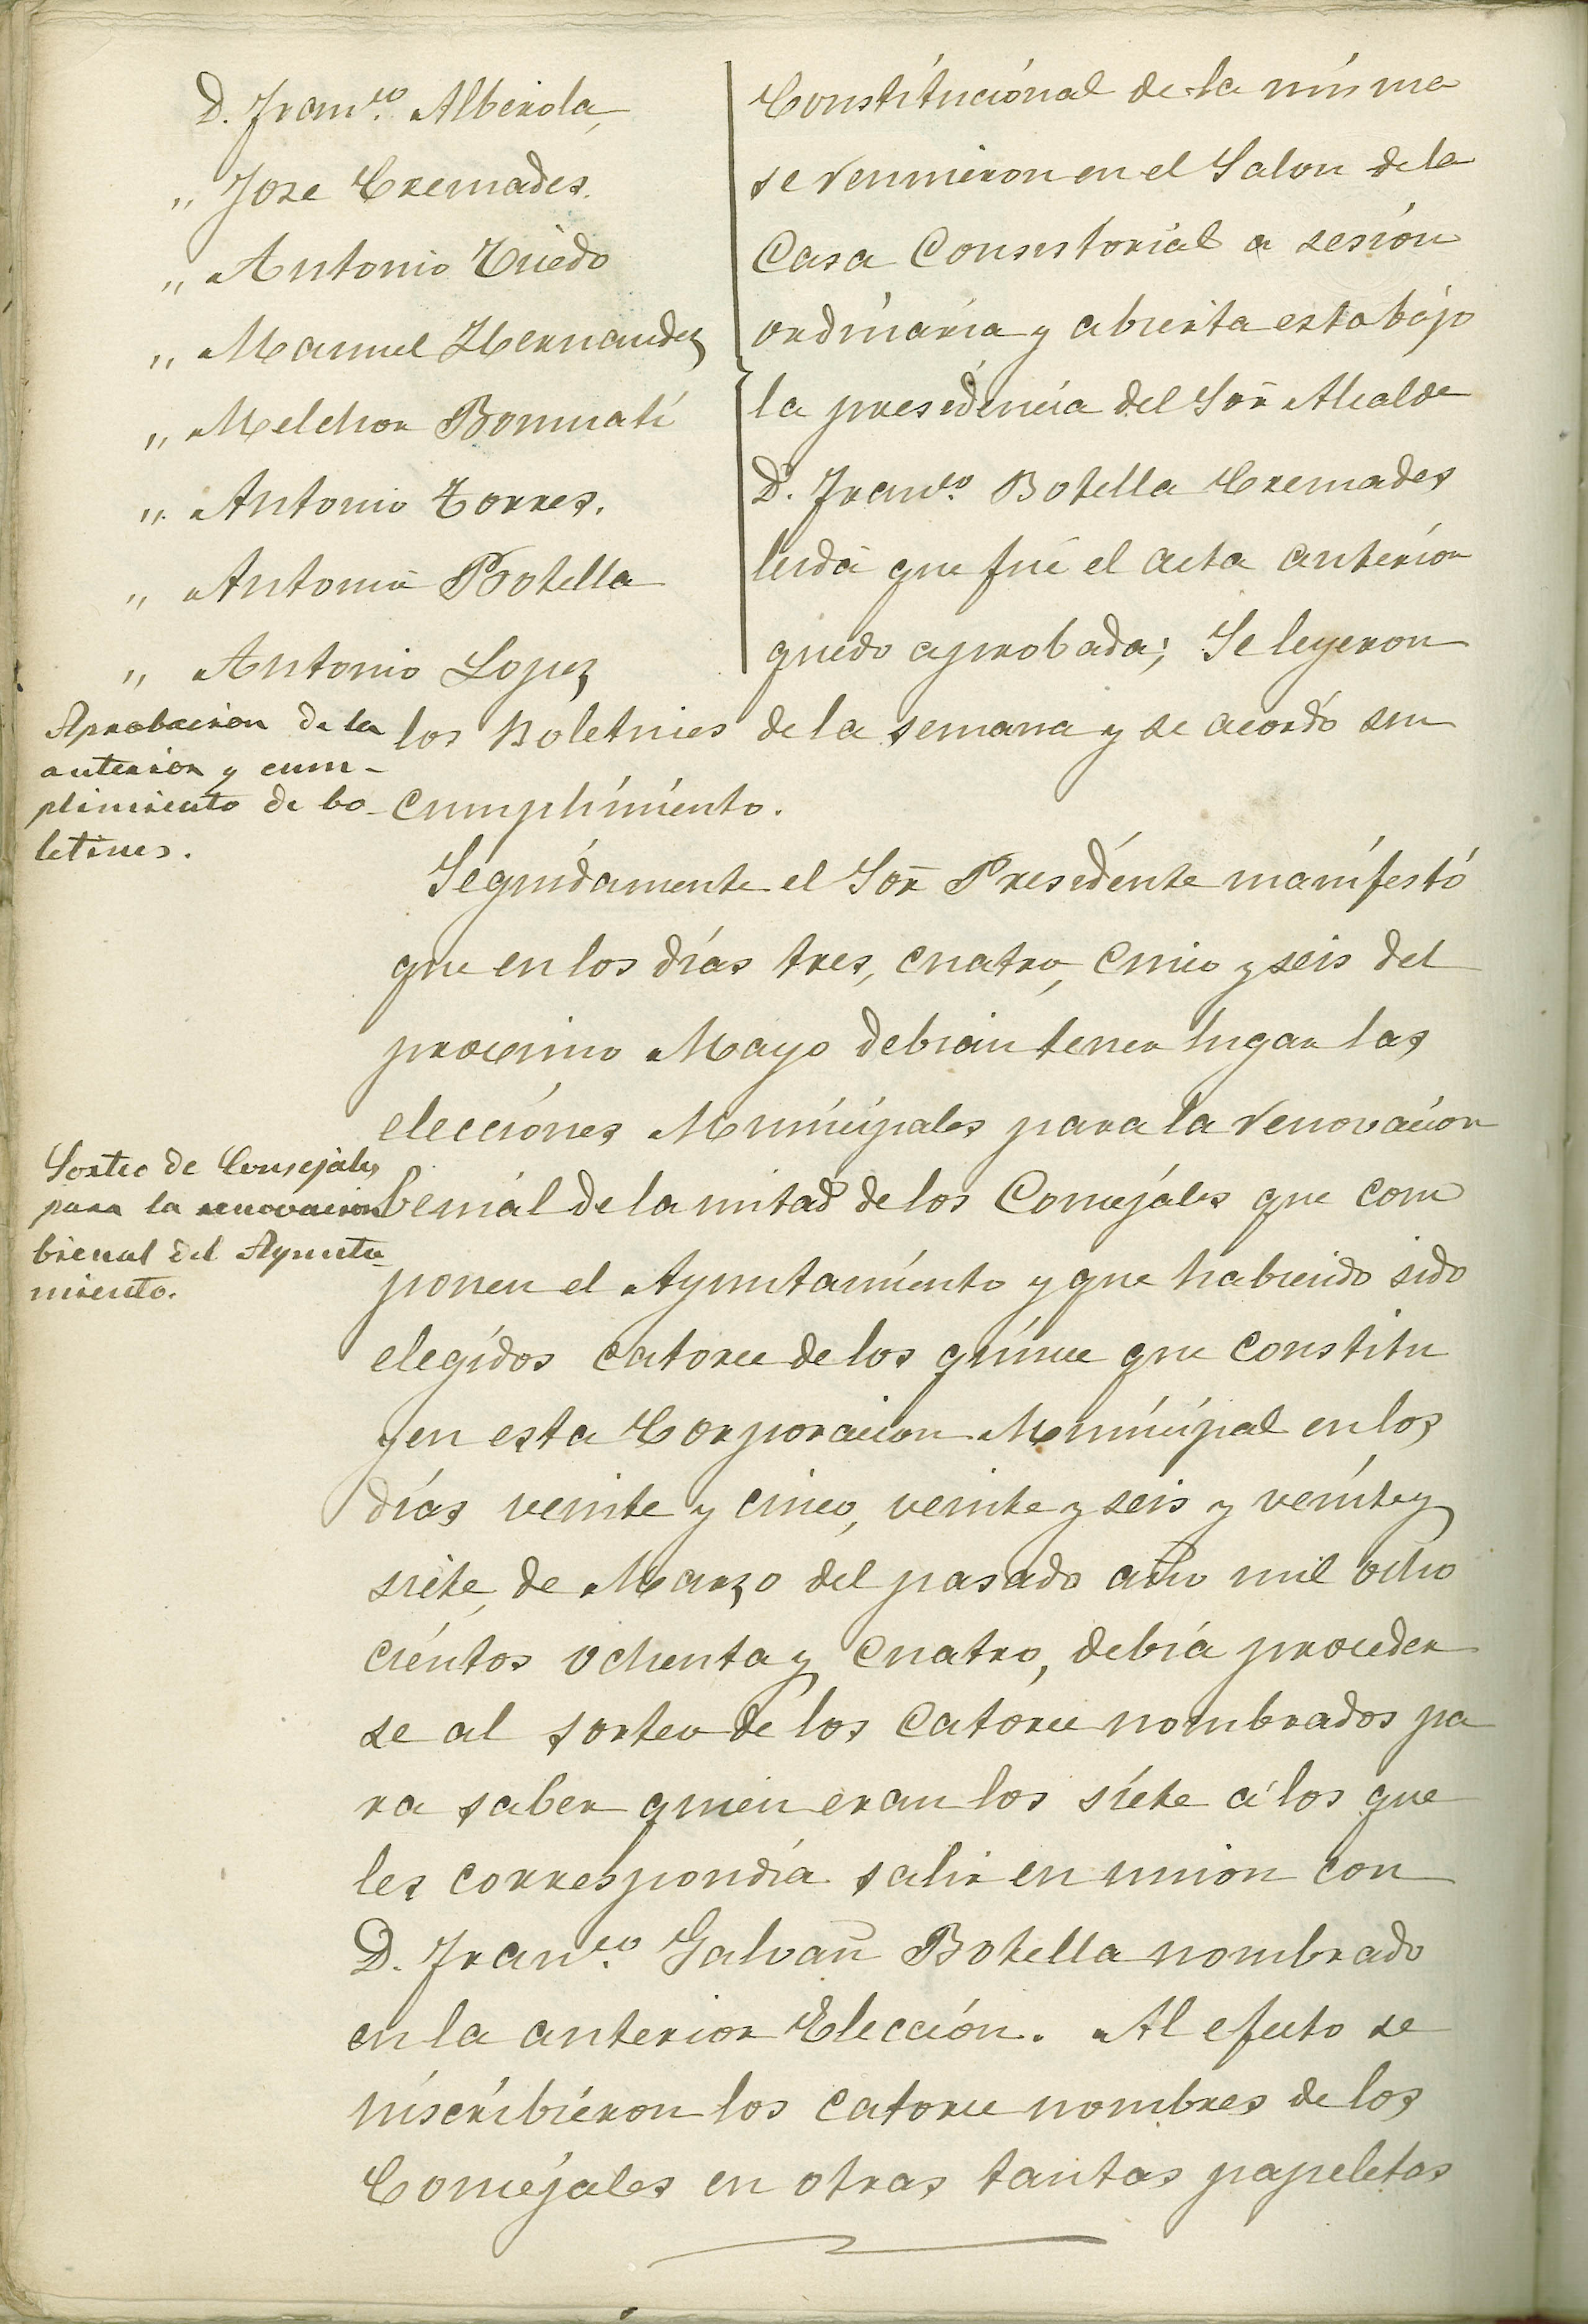 D. Franco. Alberola,
„ Jose Cremades.
„ Antonio Tuedo
„ Manuel Hernandez
„ Melchor Bonmatí
„ Antonio Torres.
„ Antonio Botella
„ Antonio Lopez
Constitucional de la misma
se reunieron en el Salon de la
Casa Consistorial a sesión
ordinaria y abierta esta bajo
la presidencia del Sor̃ Alcalde
D. Franco. Botella Cremades
leida que fué el acta anterior
quedo aprobada; Se leyeron
los Boletines de la semana y se acordó su
cumplimiento.
Aprobacion de la
anterior y cum-
plimiento de bo-
letines.
Seguidamente el Sor̃ Presidente manifestó
que en los días tres, cuatro, cinco y seis del
proximo Mayo debian tener lugar las
elecciónes Municipales para la renovacion
Sorteo de Consejales
para la renovacion
bienal del Ayunta-
miento.
benial de la mitad de los Concejales que com
ponen el Ayuntamiento y que habiendo sido
elegidos catorce de los quince que constitu
yen esta Corporacion Municipal en los
días veinte y cinco, veinte y seis y veinte y
siete, de Marzo del pasado año mil ocho
cientos ochenta y cuatro, debía proceder
se al sorteo de los catorce nombrados pa
ra saber quien eran los siete á los que
les correspondía salir en union con
D. Franco. Galvañ Botella nombrado
en la anterior Elección. Al efecto se
inscribieron los catorce nombres de los
Concejales en otras tantas papeletas